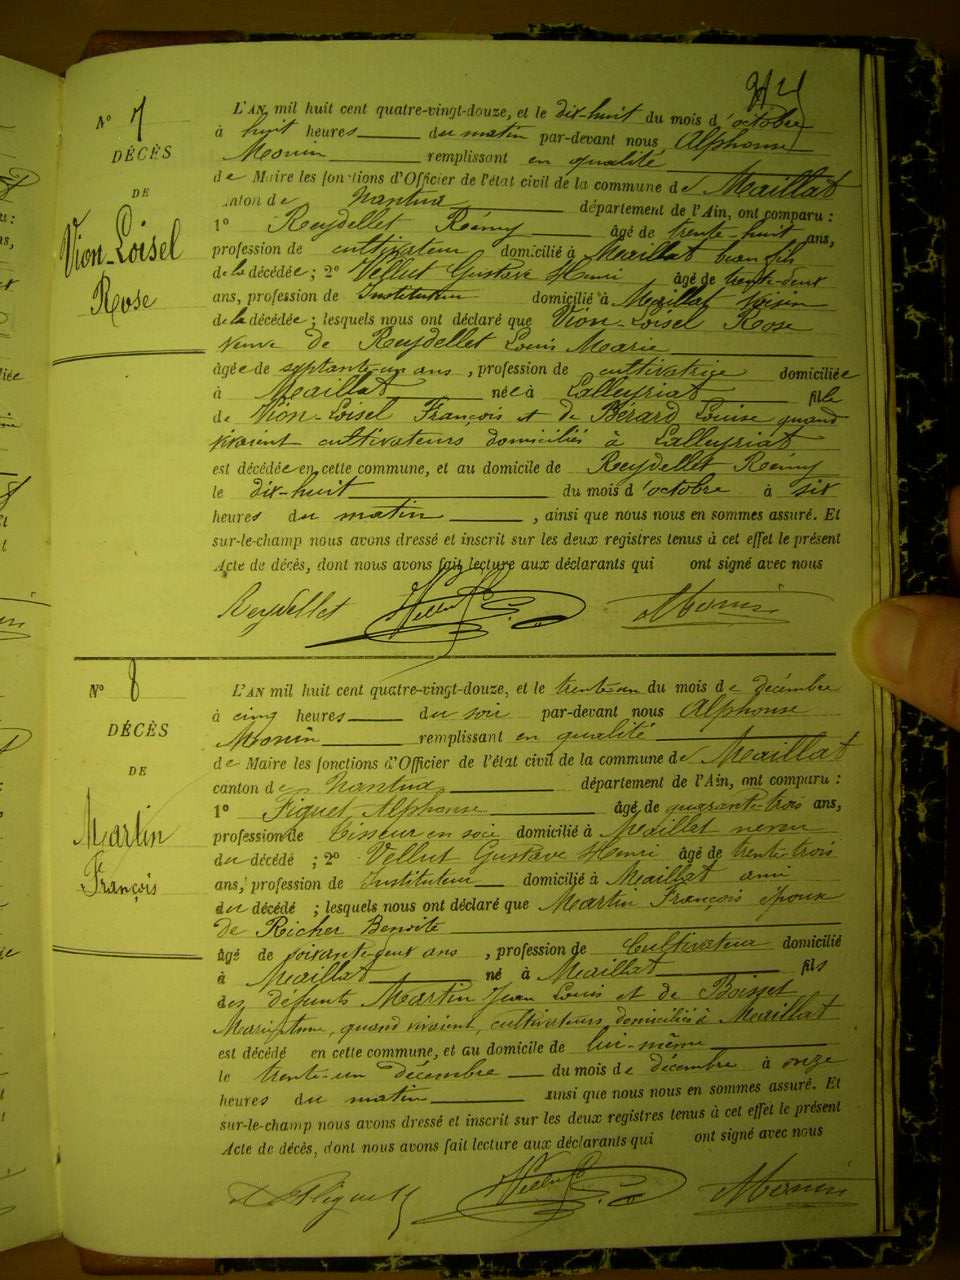 N° 7
DÉCÈS
DE
Vion-Loisel
Rose
L'AN mil huit cent quatre-vingt-douze, et le dix-huit du mois d'octobre
à huit heures du matin par-devant nous Alphonse
Monin remplissant en qualité
de Maire les fonctions d'Officier de l'état civil de la commune de Maillat
canton de Nantua département de l'Ain, ont comparu :
1° Reydellet Rémy âgé de trente-huit ans,
profession de cultivateur domicilié à Maillat beau fils
de la décédée ; 2° Vellut Gustave Henri âgé de trente-deux
ans, profession de Instituteur domicilié à Maillat voisin
de la décédée ; lesquels nous ont déclaré que Vion-Loisel Rose
veuve de Reydellet Louis Marie
âgée de septante-un ans, profession de cultivatrice domiciliée
à Maillat née à Lalleyriat fille
de Vion-Loisel François et de Bérard Louise quand
vivaient cultivateurs domiciliés à Lalleyriat
est décédée en cette commune, et au domicile de Reydellet Rémy
le dix-huit du mois d'octobre à six
heures du matin, ainsi que nous nous en sommes assuré. Et
sur-le-champ nous avons dressé et inscrit sur les deux registres tenus à cet effet le présent
Acte de décès, dont nous avons fait lecture aux déclarants qui ont signé avec nous
Reydellet Vellut Monin
N° 8
DÉCÈS
DE
Martin
François
L'AN mil huit cent quatre-vingt-douze, et le trente-un du mois de décembre
à cinq heures du soir par-devant nous Alphonse
Monin remplissant en qualité
de Maire les fonctions d'Officier de l'état civil de la commune de Maillat
canton de Nantua département de l'Ain, ont comparu :
1° Figuet Alphonse âgé de quarante-trois ans,
profession de Tisseur en soie domicilié à Maillat neveu
du décédé ; 2° Vellut Gustave Henri âgé de trente-trois
ans, profession de Instituteur domicilié à Maillat ami
du décédé ; lesquels nous ont déclaré que Martin François époux
de Richer Benoite
âgé de ans, profession de Cultivateur domicilié
à Maillat né à Maillat fils
des défunts Martin Jean Louis et de Boisset
Marie, quand vivaient, cultivateurs domiciliés à Maillat
est décédé en cette commune, et au domicile de lui-même
le trente-un décembre du mois de décembre à onze
heures du matin ainsi que nous nous en sommes assuré. Et
sur-le-champ nous avons dressé et inscrit sur les deux registres tenus à cet effet le présent
Acte de décès, dont nous avons fait lecture aux déclarants qui ont signé avec nous
A Figuet Vellut Monin